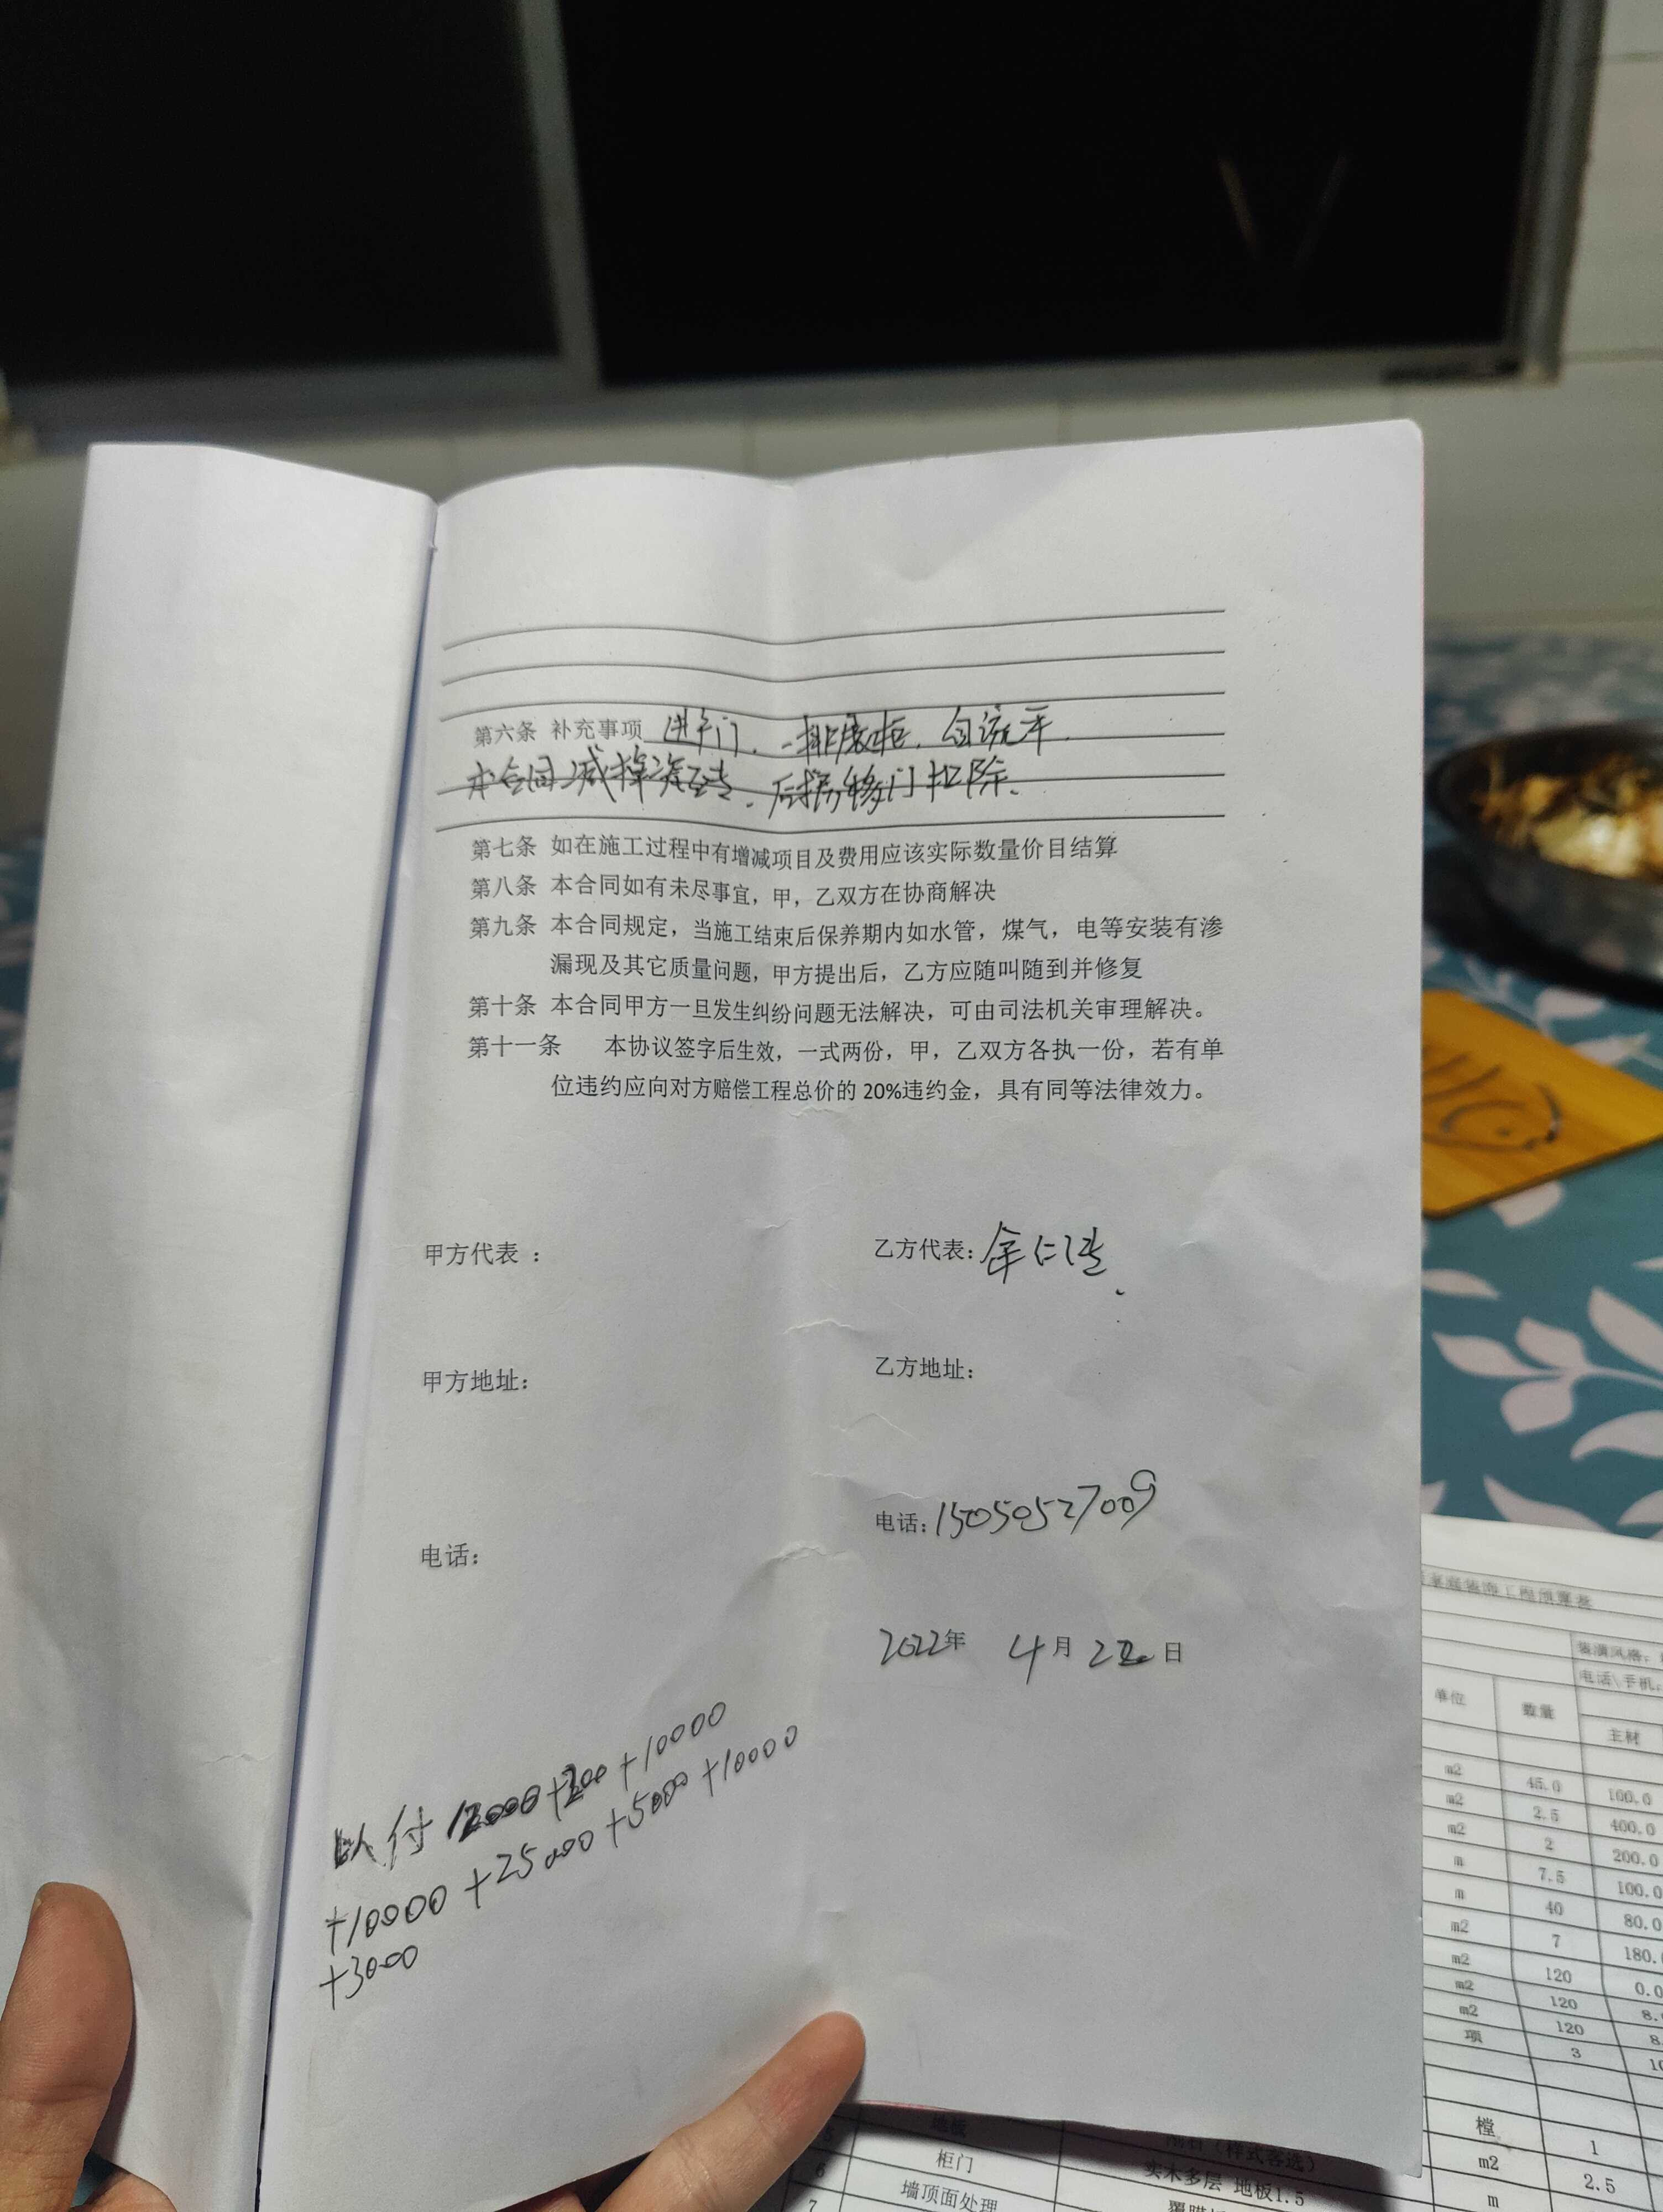 第六条 补充事项 进户门、一排底柜、自流平.
本合同减掉瓷砖、后期移门扣除.
第七条 如在施工过程中有增减项目及费用应该实际数量价目结算
第八条 本合同如有未尽事宜，甲，乙双方在协商解决
第九条 本合同规定，当施工结束后保养期内如水管，煤气，电等安装有渗
漏现及其它质量问题，甲方提出后，乙方应随叫随到并修复
第十条 本合同甲方一旦发生纠纷问题无法解决，可由司法机关审理解决。
第十一条 本协议签字后生效，一式两份，甲，乙双方各执一份，若有单
位违约应向对方赔偿工程总价的 20%违约金，具有同等法律效力。
甲方代表：
乙方代表：
甲方地址：
乙方地址：
电话：
电话：15050527009
2022年 4月 日
以付 12000+200+10000
+10000+25000+5000+10000
+3000
家庭装饰工程预算表
装潢风格：
电话\手机：
单位 数量
主材
m2 45.0 100.0
m2 2.5 400.0
m2 2 200.0
m 7.5 100.0
m 40 80.0
m2 7 180.
m2 120 0.0
m2 120 8.
m2 120 8
项 3 10
地板 （样式客选） 樘 1
6 柜门 实木多层 地板1.5 m2 2.5
7 墙顶面处理 m